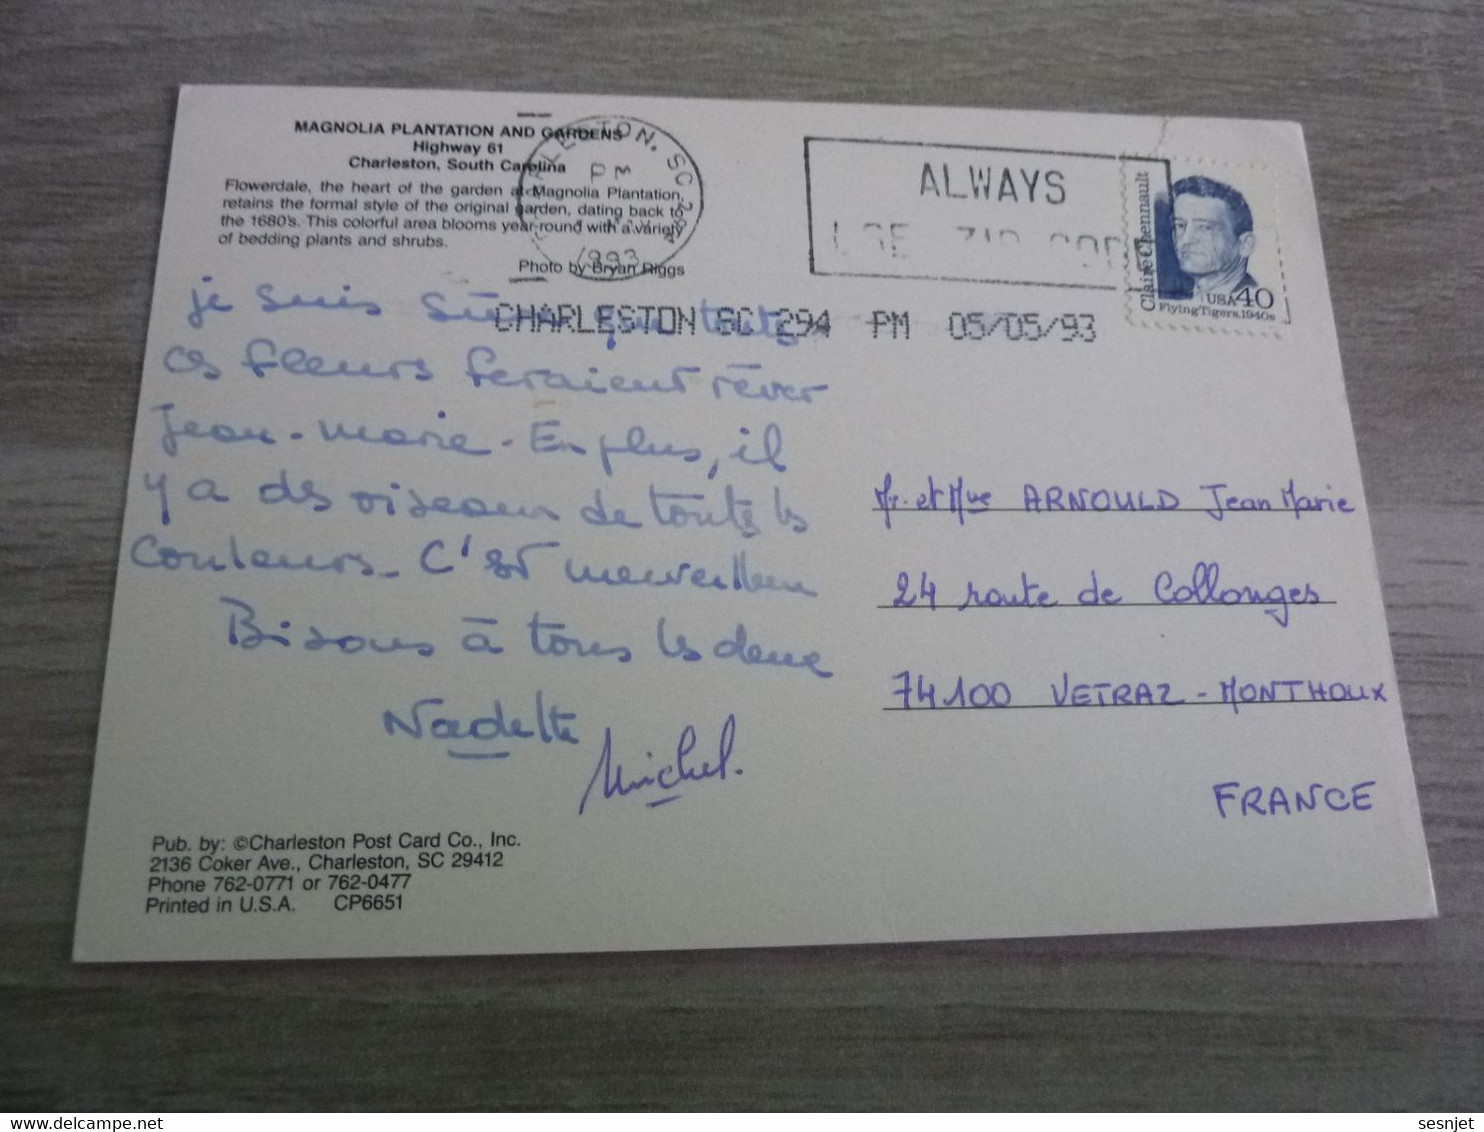 MAGNOLIA PLANTATION AND GARDENS
Highway 61
Charleston, South Carolina
Flowerdale, the heart of the garden at Magnolia Plantation,
retains the formal style of the original garden, dating back to
the 1680's. This colorful area blooms year round with a variety
of bedding plants and shrubs.
Photo by Bryan Riggs
TON, SC 294
PM
1993
ALWAYS
USE ZIP CODE
CHARLESTON SC 294 PM 05/05/93
Claire Chennault
USA 40
Flying Tigers, 1940s
je suis sûre que toutes
ces fleurs feraient rêver
Jean-Marie. En plus, il
y a des oiseaux de toutes les
couleurs. C'est merveilleux
Bisous à tous les deux
Nadette
Michel.
Mr. et Mme ARNOULD Jean Marie
24 route de Collonges
74100 VETRAZ-MONTHOUX
FRANCE
Pub. by: ©Charleston Post Card Co., Inc.
2136 Coker Ave., Charleston, SC 29412
Phone 762-0771 or 762-0477
Printed in U.S.A. CP6651
sesnjet